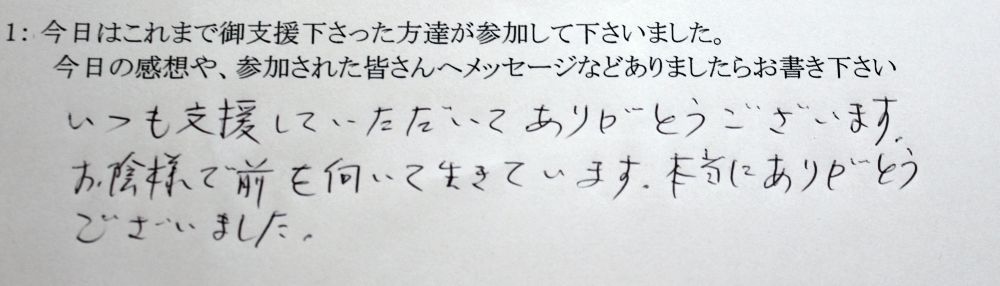 1: 今日はこれまで御支援下さった方達が参加して下さいました。
今日の感想や、参加された皆さんへメッセージなどありましたらお書き下さい
いつも支援していただいてありがとうございます。
お陰様で前を向いて生きています。本当にありがとう
ございました。